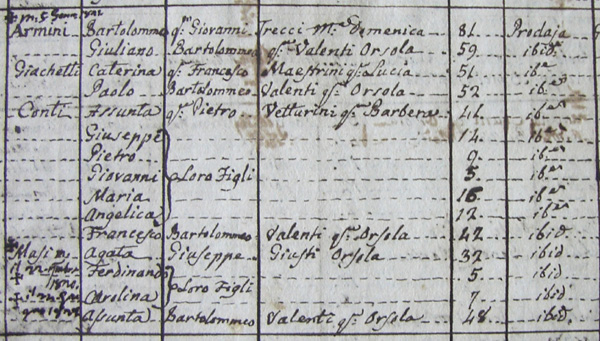 Armini Bartolommeo qm. Giovanni Trecci Ma. Domenica 81. Prodaja
Giuliano Bartolommeo qm. Valenti Orsola 59. ibid
Giachetti Caterina qm. Francesco Maestrini qm. Lucia 51. ib
Paolo Bartolommeo Valenti qm. Orsola 52 ib
Conti Assunta qm. Pietro Vetturini qm. Barbera 41. ib
Giuseppe 14. ib
Pietro 9. ib
Giovanni Loro Figli 5. ib
Maria 16 ib
Angelica 12. ib
Francesco Bartolommeo Valenti qm. Orsola 42 ibid
Masi Agata Giuseppe Giusti Orsola 32 ibid
Ferdinando 5. ibid
Carolina Loro Figli 7 ibid
Assunta Bartolommeo Valenti qm. Orsola 48. ibid